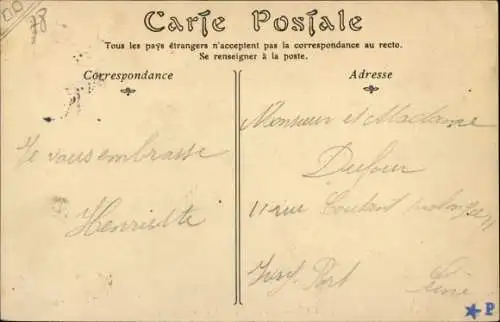 78
Carte Postale
Tous les pays étrangers n'acceptent pas la correspondance au recto.
Se renseigner à la poste.
Correspondance
Je vous embrasse
Henriette
Adresse
Monsieur et Madame
Dufour
11 rue Coutant prolongée
Ivry Port
Seine
P